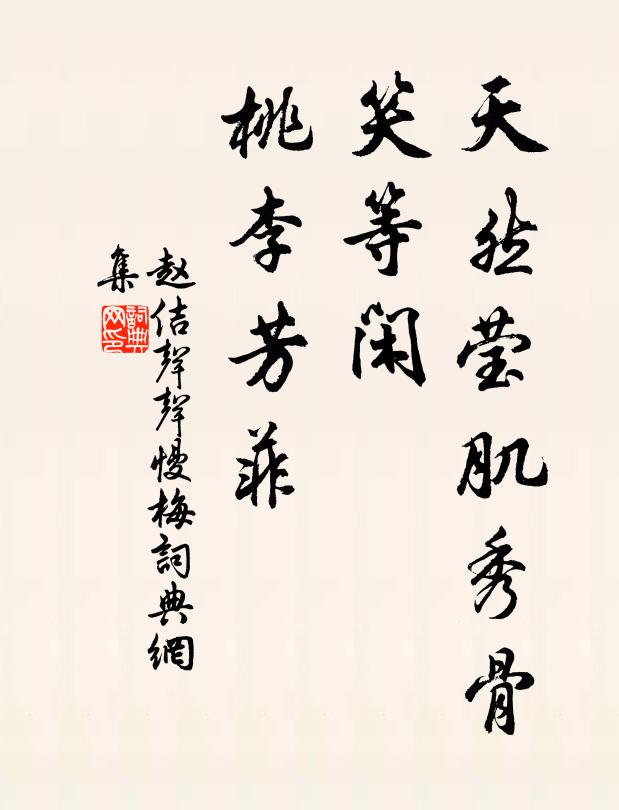 天然莹肌秀骨
笑等闲
桃李芳菲
赵佶聲聲慢梅詞典網
集
詞典
网印